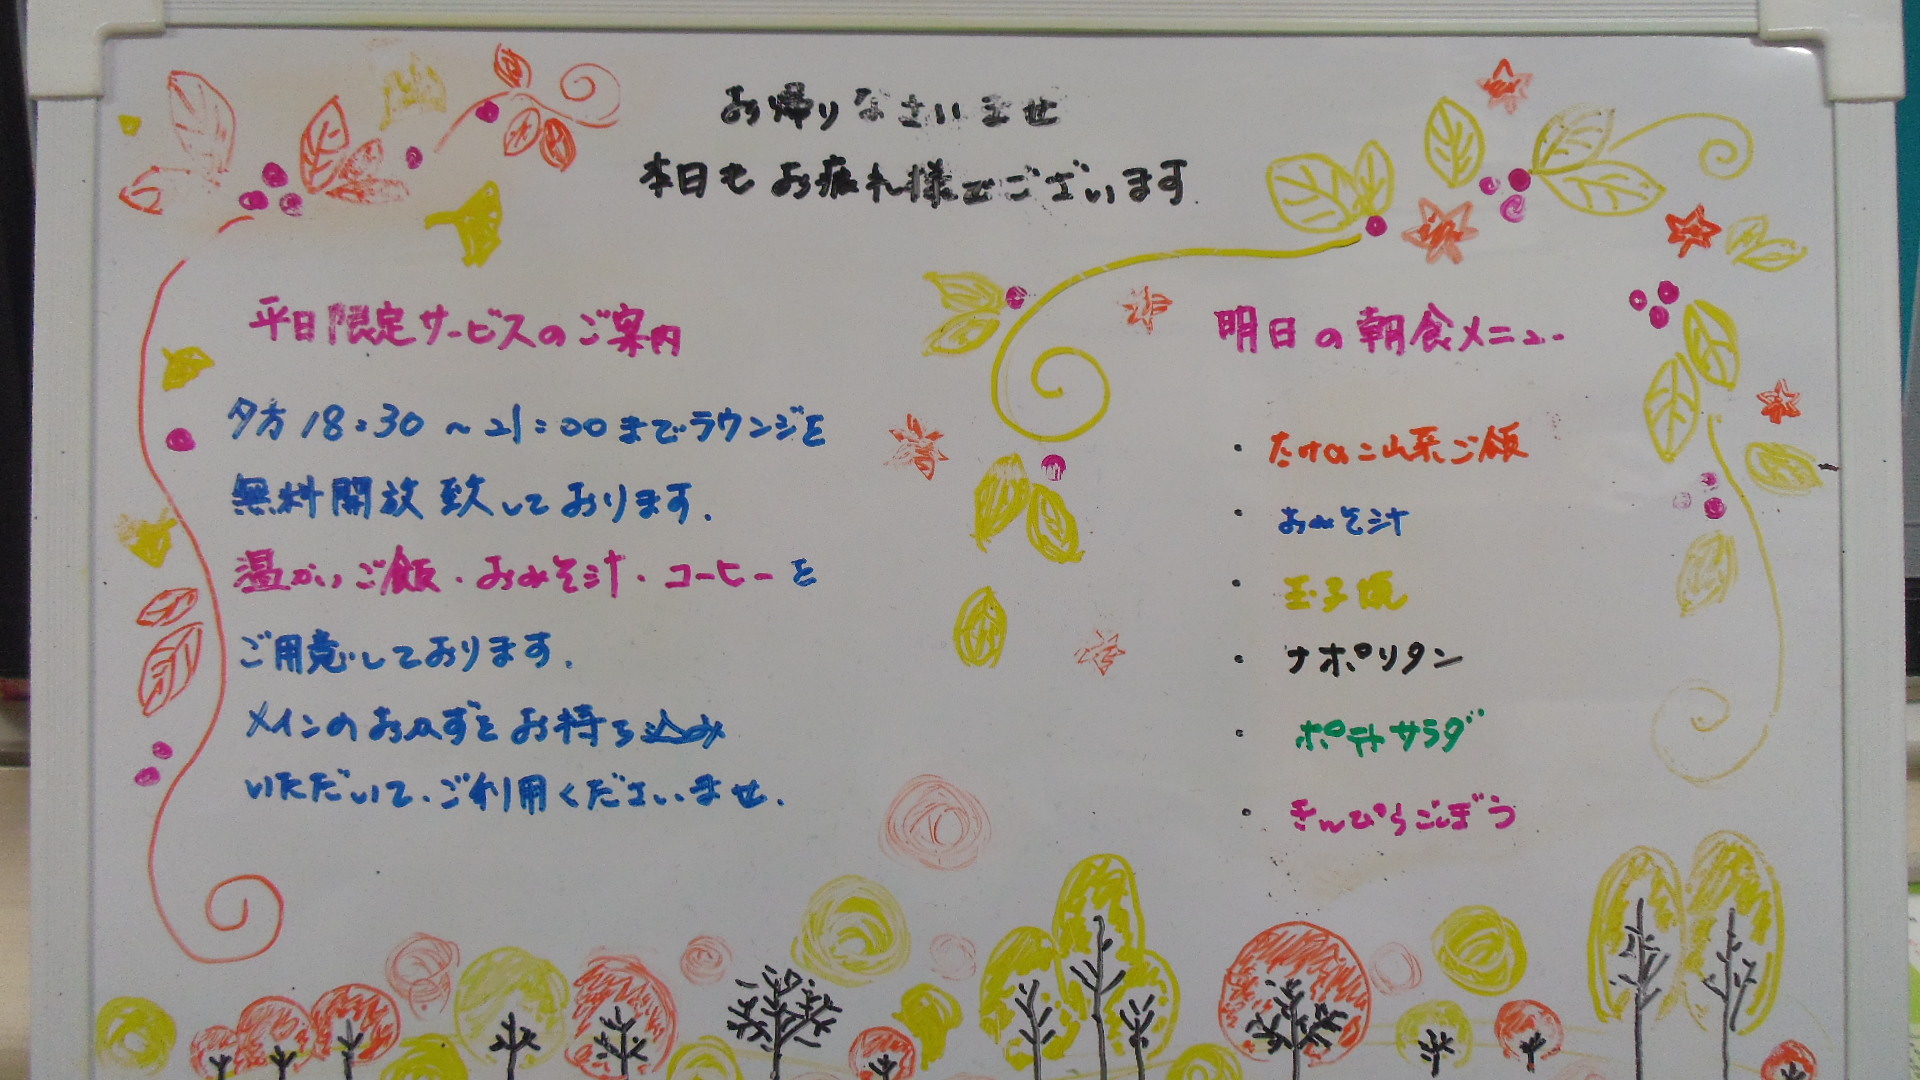 お帰りなさいませ
本日もお疲れ様でございます
平日限定サービスのご案内
夕方18:30〜21:00までラウンジを
無料開放致しております.
温かいご飯・おみそ汁・コーヒーを
ご用意しております.
メインのおかずをお持ち込み
いただいて、ご利用くださいませ.
明日の朝食メニュー
・たけのこ山菜ご飯
・おみそ汁
・玉子焼
・ナポリタン
・ポテトサラダ
・きんぴらごぼう